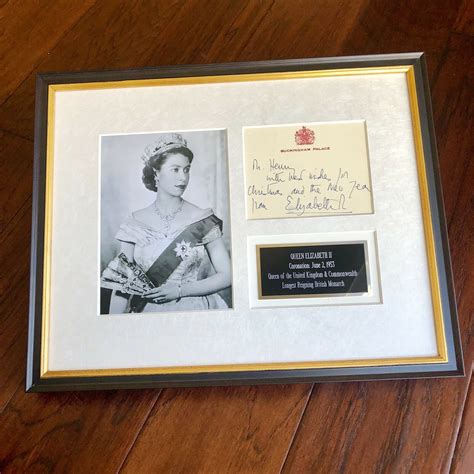 BUCKINGHAM PALACE
Mr. Henn
with best wishes for
Christmas and the New Year
from Elizabeth R
QUEEN ELIZABETH II
Coronation: June 2, 1953
Queen of the United Kingdom & Commonwealth
Longest Reigning British Monarch